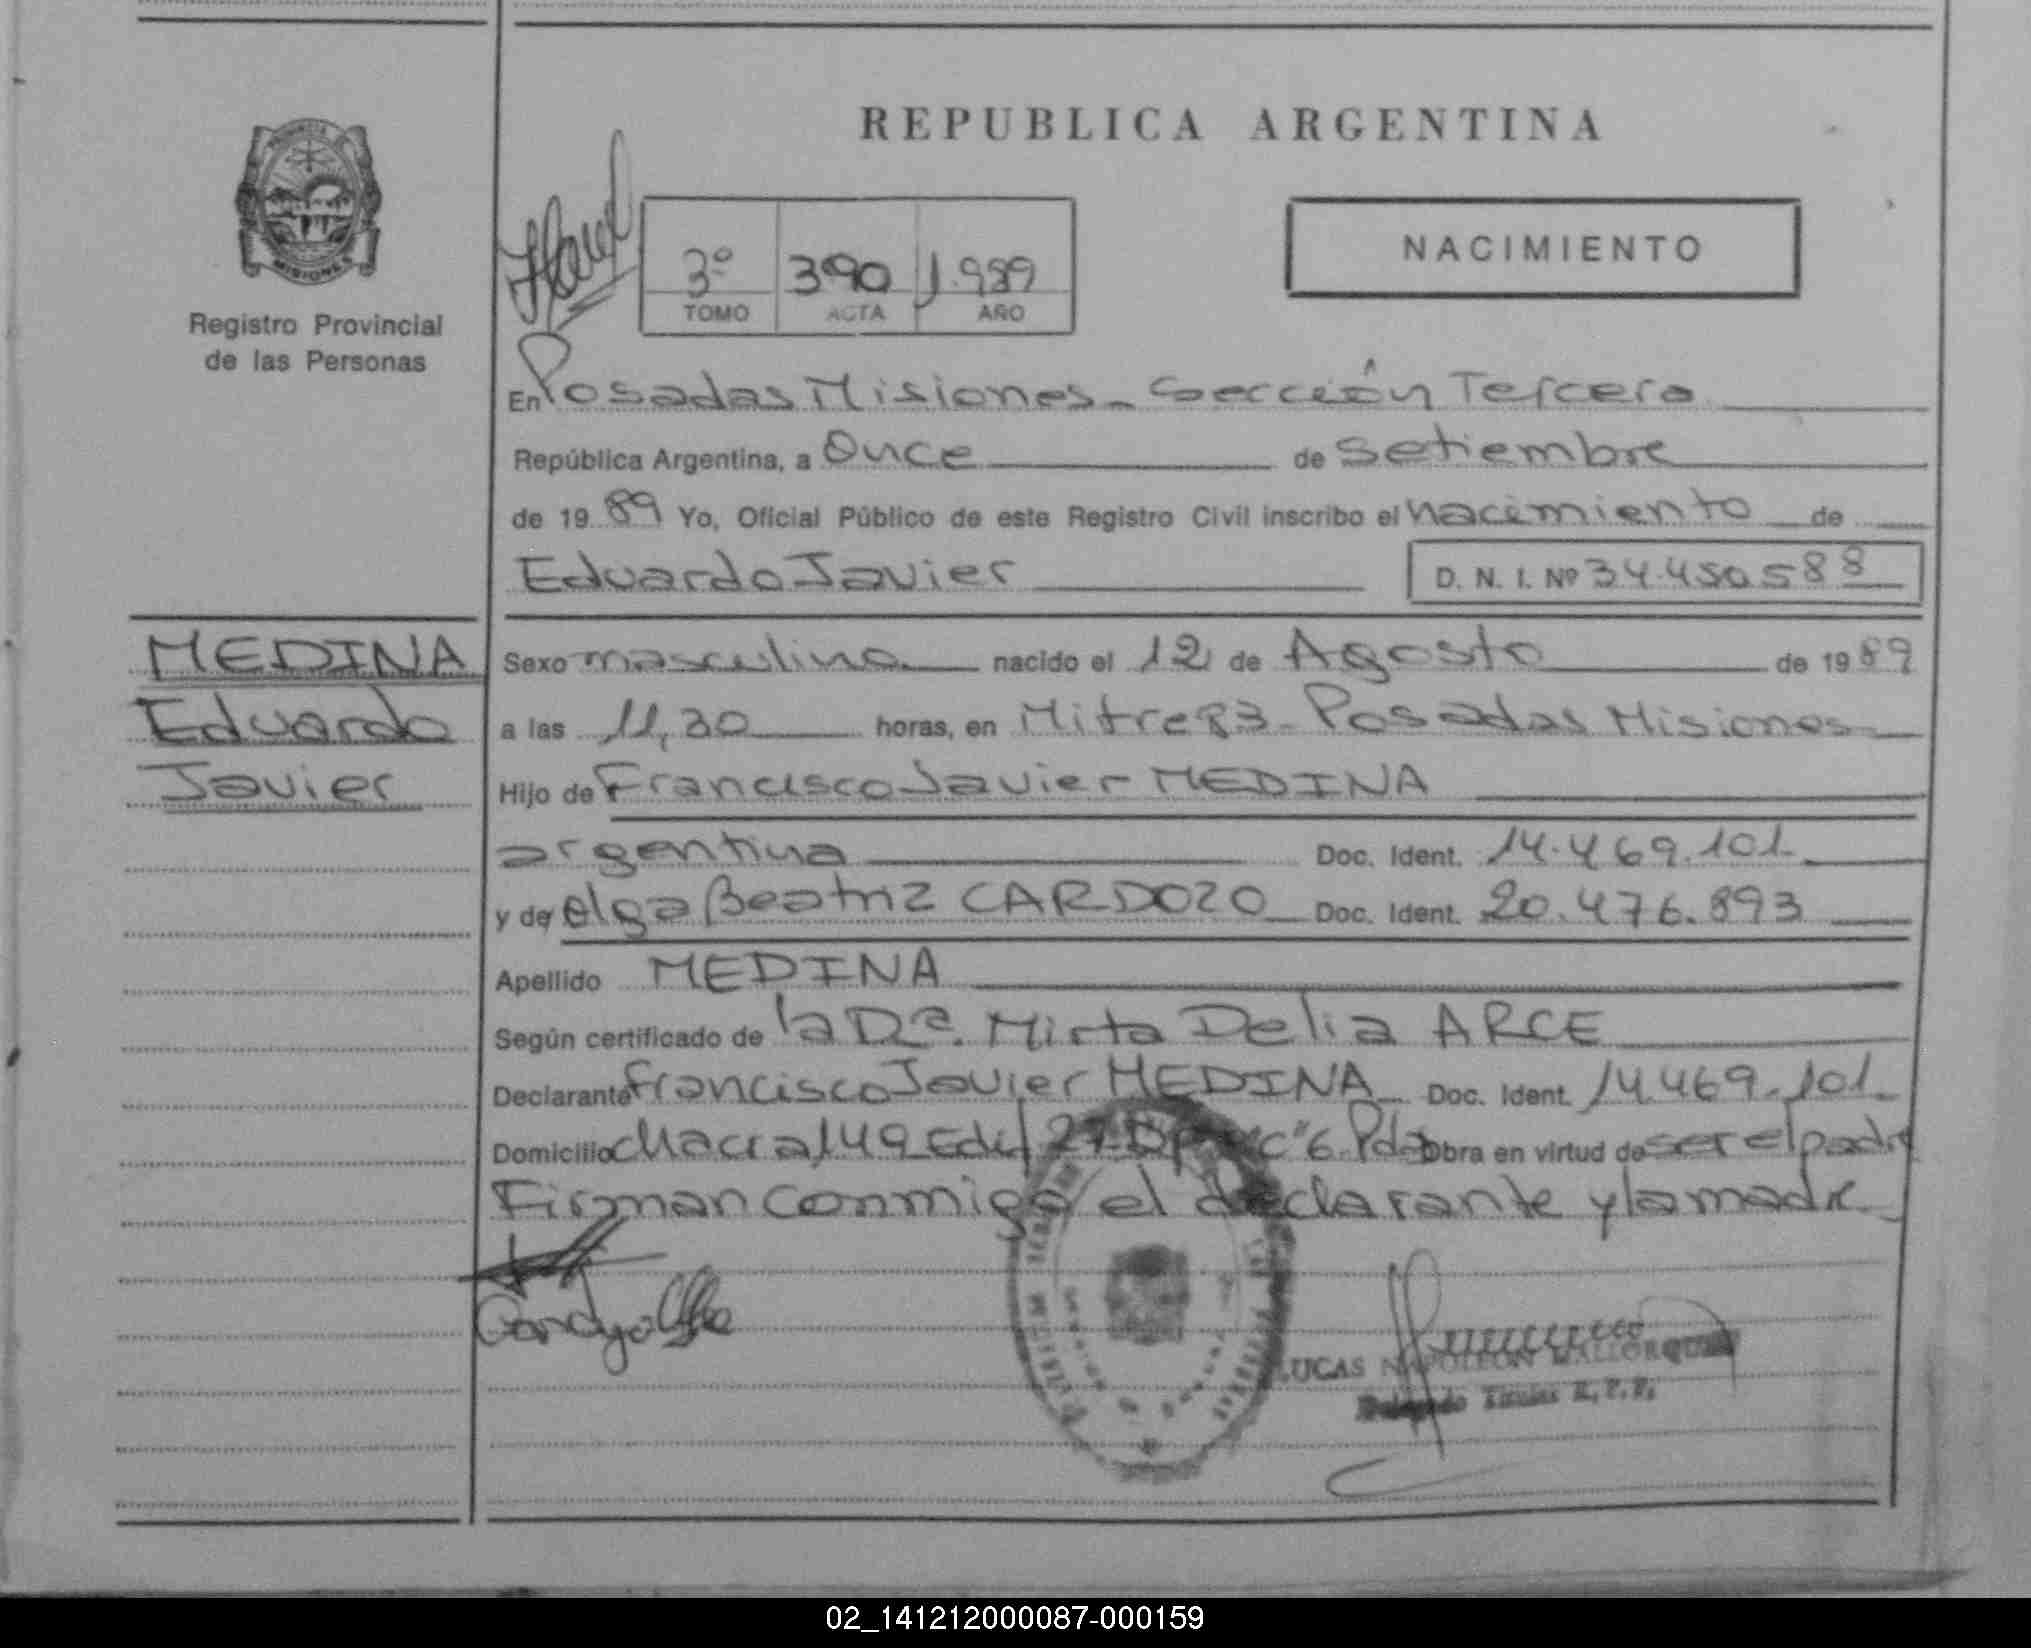 REPUBLICA ARGENTINA
MISIONES
Registro Provincial
de las Personas
3º 390 1.989
TOMO ACTA AÑO
NACIMIENTO
En Posadas Misiones - Sección Tercera
República Argentina, a Once de Setiembre
de 1989 Yo, Oficial Público de este Registro Civil inscribo el nacimiento de
Eduardo Javier D. N. I. Nº 34.450588
MEDINA
Eduardo
Javier
Sexo masculino nacido el 12 de Agosto de 1989
a las 11,30 horas, en Mitre 83 - Posadas Misiones
Hijo de Francisco Javier MEDINA
argentina Doc. Ident. 14.469.101
y de Olga Beatriz CARDOZO Doc. Ident. 20.476.893
Apellido MEDINA
Según certificado de la Dra. Mirta Delia ARCE
Declarante Francisco Javier MEDINA Doc. Ident. 14.469.101
Domicilio Chacra 149 Edif 27 "C" 6. Pdas Obra en virtud de ser el padre
Firman conmigo el declarante y la madre
LUCAS NAPOLEON MALLORQUIN
Delegado Titular R.P.P.
02_141212000087-000159